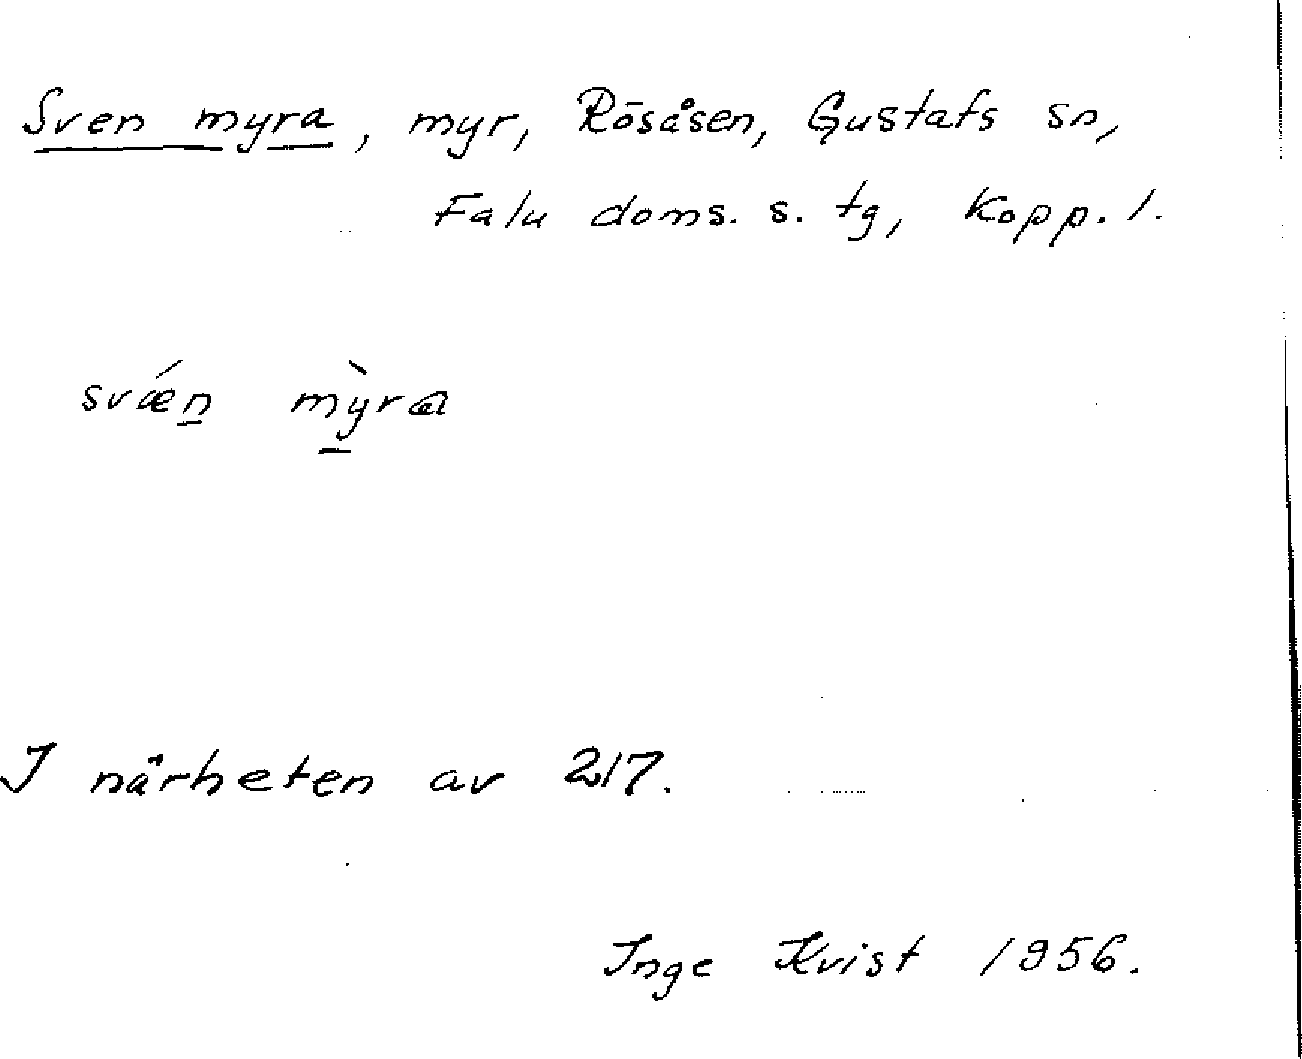 Sven myra, myr, Rösåsen, Gustafs sn,
Falu doms. s. tg, Kopp. l.
svǽn mỳra
I närheten av 217.
Inge Kvist 1956.